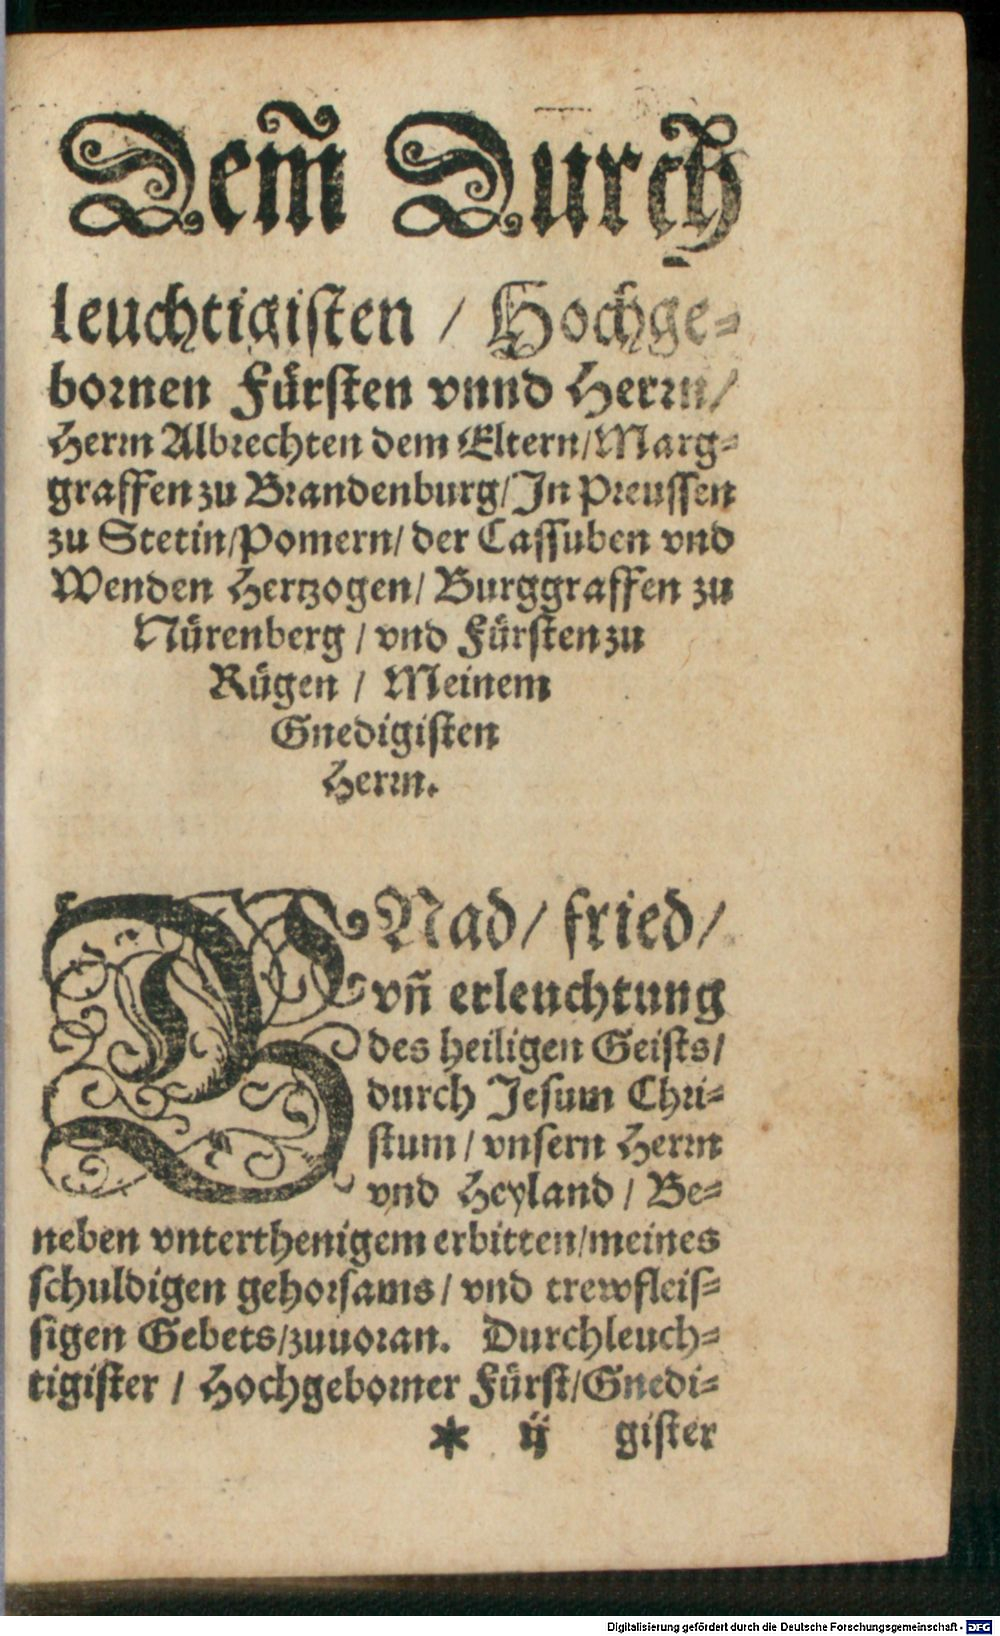 Dem̃ Durch
leuchtigisten / Hochge⸗
bornen Fürsten vnnd Herrn/
Herrn Albrechten dem Eltern/Marg⸗
graffen zu Brandenburg/In Preussen
zu Stetin/Pomern/ der Cassuben vnd
Wenden Hertzogen/ Burggraffen zu
Nürenberg / vnd Fürsten zu
Rügen / Meinem
Gnedigisten
Herrn.
GNad/ fried/
vñ erleuchtung
des heiligen Geists/
durch Jesum Chri⸗
stum / vnsern Herrn
vnd Heyland / Be⸗
neben vnterthenigem erbitten/meines
schuldigen gehorsams / vnd trewfleis⸗
sigen Gebets/zuuoran. Durchleuch⸗
tigister / Hochgeborner Fürst/Gnedi⸗
* ij gister
Digitalisierung gefördert durch die Deutsche Forschungsgemeinschaft - DFG